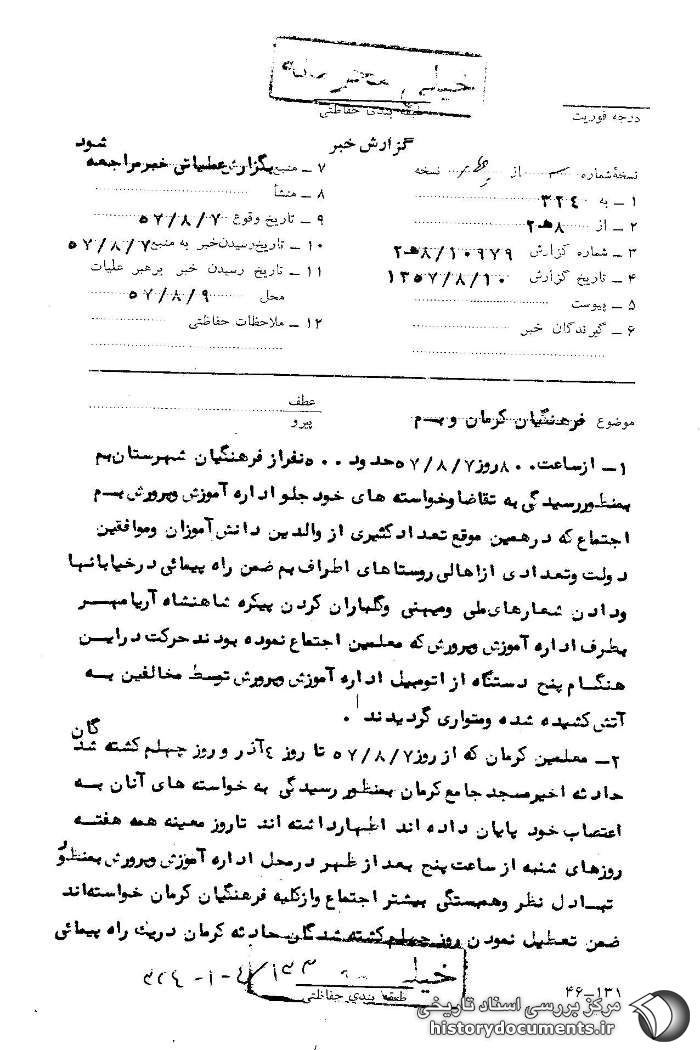 خیلی محرمانه
طبقه بندی حفاظتی
درجه فوریت
گزارش خبر
نسخهٔ شماره از نسخه
۱ – به ۳۲۴
۲ – از ۸هـ۲
۳ – شماره گزارش ۸/۱۰۹۷۹هـ۲
۴ – تاریخ گزارش ۱۳۵۷/۸/۱۰
۵ – پیوست
۶ – گیرندگان خبر
شود
۷ – منبع بگزارش عملیاتی خبر مراجعه
۸ – منشأ
۹ – تاریخ وقوع ۵۷/۸/۷
۱۰ – تاریخ رسیدن خبر به منبع ۵۷/۸/۷
۱۱ – تاریخ رسیدن خبر برهبر عملیات
محل ۵۷/۸/۹
۱۲ – ملاحظات حفاظتی
موضوع فرهنگیان کرمان و بم
عطف
پیرو
۱– ازساعت ۸۰۰ روز ۵۷/۸/۷ حدود ۵۰۰ نفراز فرهنگیان شهرستان بم
بمنظوررسیدگی به تقاضا وخواسته های خود جلو اداره آموزش وپرورش بم
اجتماع که درهمین موقع تعداد کثیری از والدین دانش آموزان وموافقین
دولت وتعدادی ازاهالی روستاهای اطراف بم ضمن راه پیمائی درخیابانها
ودادن شعارهای ملی ومیهنی وگلباران کردن پیکره شاهنشاه آریامهر
بطرف اداره آموزش وپرورش که معلمین اجتماع نموده بودند حرکت دراین
هنگام پنج دستگاه از اتومبیل اداره آموزش وپرورش توسط مخالفین به
آتش کشیده شده ومتواری گردیدند .
۲– معلمین کرمان که از روز ۵۷/۸/۷ تا روز ۴ آذر و روز چهلم کشته شدگان
حادثه اخیرمسجد جامع کرمان بمنظور رسیدگی به خواسته های آنان به
اعتصاب خود پایان داده اند اظهارداشته اند تاروز معینه همه هفته
روزهای شنبه از ساعت پنج بعد از ظهر درمحل اداره آموزش وپرورش بمنظور
تبادل نظر وهمبستگی بیشتر اجتماع وازکلیه فرهنگیان کرمان خواسته‌اند
ضمن تعطیل نمودن روز چهلم کشته شدگان حادثه کرمان دریک راه پیمائی
خیلی
طبقه بندی حفاظتی
۳۲۴-۱-۴/۱۳۳
۴۶–۱۳۱
مرکز بررسی اسناد تاریخی
historydocuments.ir